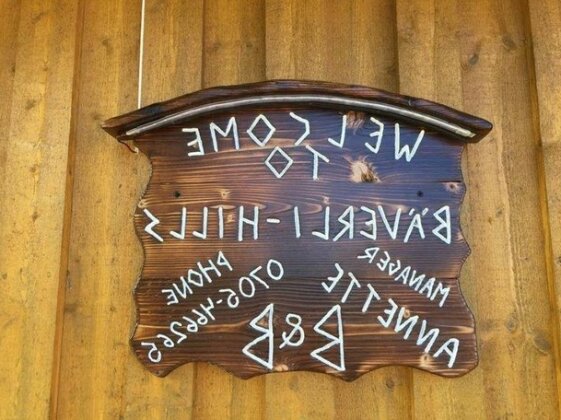 WELCOME
TO
BÄVERLI-HILLS
MANAGER
ANNETTE
PHONE
0705-466265
B&B